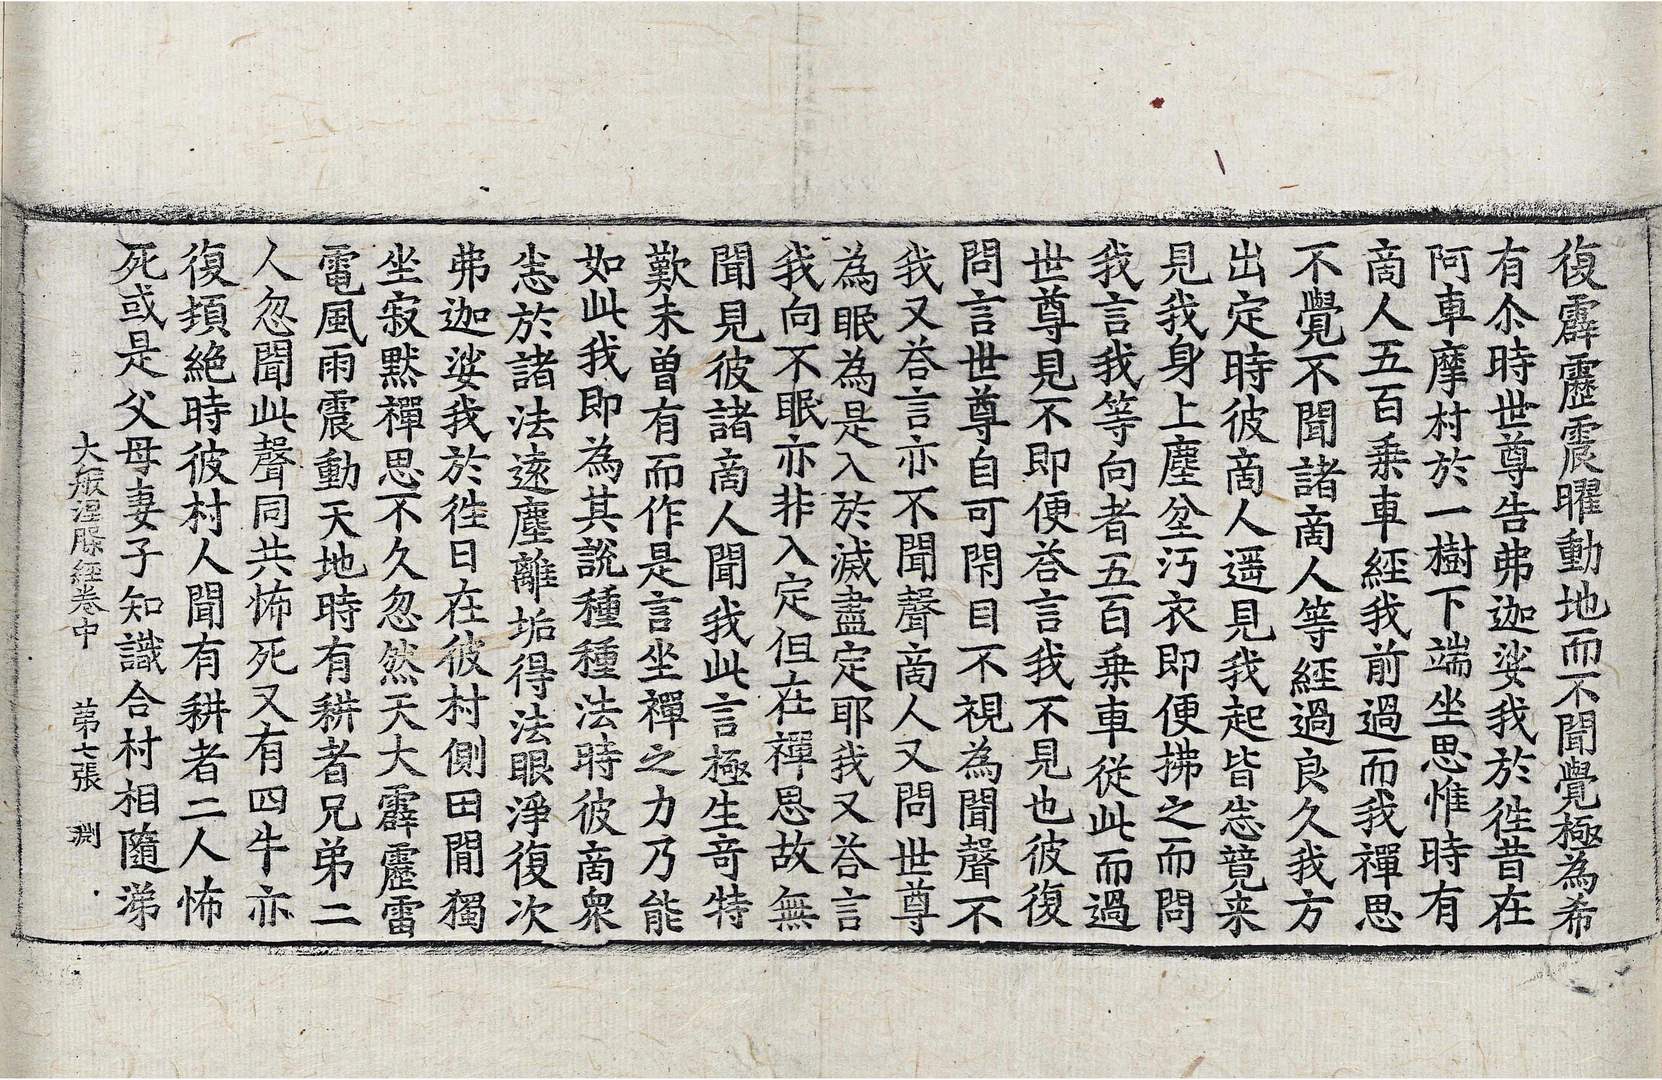 復霹靂震曜動地而不聞覺極為希
有尒時世尊告弗迦娑我於徃昔在
阿車摩村於一樹下端坐思惟時有
商人五百乗車經我前過而我禪思
不覺不聞諸商人等經過良久我方
出定時彼商人遥見我起皆㤀競来
見我身上塵坌汚衣即便拂之而問
我言我等向者五百乗車從此而過
世尊見不即便荅言我不見也彼復
問言世尊自可閇目不視為聞聲不
我又荅言亦不聞聲商人又問世尊
為眠為是入於滅盡定耶我又荅言
我向不眠亦非入定但在禪思故無
聞見彼諸商人聞我此言極生竒特
歎未曾有而作是言坐禪之力乃能
如此我即為其說種種法時彼商衆
㤀於諸法遠塵離垢得法眼淨復次
弗迦娑我於徃日在彼村側田閒獨
坐寂黙禪思不久忽然天大霹靂雷
電風雨震動天地時有耕者兄弟二
人忽聞此聲同共怖死又有四牛亦
復頓絶時彼村人聞有耕者二人怖
死或是父母妻子知識合村相隨涕
大般涅槃經卷中　第七張　渊